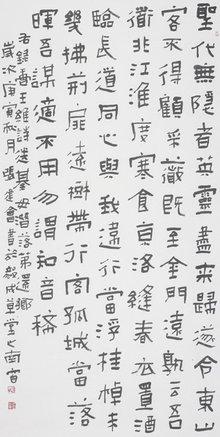 聖代無隱者英靈盡來歸遂令東山
客不得顧采薇既至金門遠孰云吾
道非江淮度寒食京洛縫春衣置酒
臨長道同心與我違行當浮桂棹未
幾拂荊扉遠樹帶行客孤城當落
暉吾謀適不用勿謂知音稀
右錄唐王維詩送綦毋潛落第還鄉
歲次庚寅秋月張建會書於 成堂之南窗